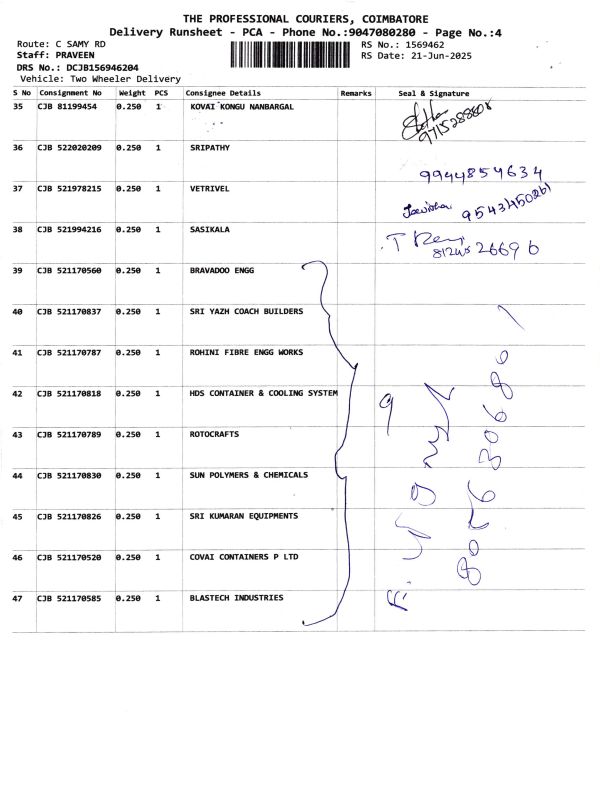 THE PROFESSIONAL COURIERS, COIMBATORE
Delivery Runsheet - PCA - Phone No.:9047080280 - Page No.:4
Route: C SAMY RD RS No.: 1569462
Staff: PRAVEEN RS Date: 21-Jun-2025
DRS No.: DCJB156946204
Vehicle: Two Wheeler Delivery
S No Consignment No Weight PCS Consignee Details Remarks Seal & Signature
35 CJB 81199454 0.250 1 KOVAI KONGU NANBARGAL
9715288608
36 CJB 522020209 0.250 1 SRIPATHY
9944854634
37 CJB 521978215 0.250 1 VETRIVEL
38 CJB 521994216 0.250 1 SASIKALA
39 CJB 521170560 0.250 1 BRAVADOO ENGG
40 CJB 521170837 0.250 1 SRI YAZH COACH BUILDERS
41 CJB 521170787 0.250 1 ROHINI FIBRE ENGG WORKS
42 CJB 521170818 0.250 1 HDS CONTAINER & COOLING SYSTEM
43 CJB 521170789 0.250 1 ROTOCRAFTS
44 CJB 521170830 0.250 1 SUN POLYMERS & CHEMICALS
45 CJB 521170826 0.250 1 SRI KUMARAN EQUIPMENTS
46 CJB 521170520 0.250 1 COVAI CONTAINERS P LTD
47 CJB 521170585 0.250 1 BLASTECH INDUSTRIES